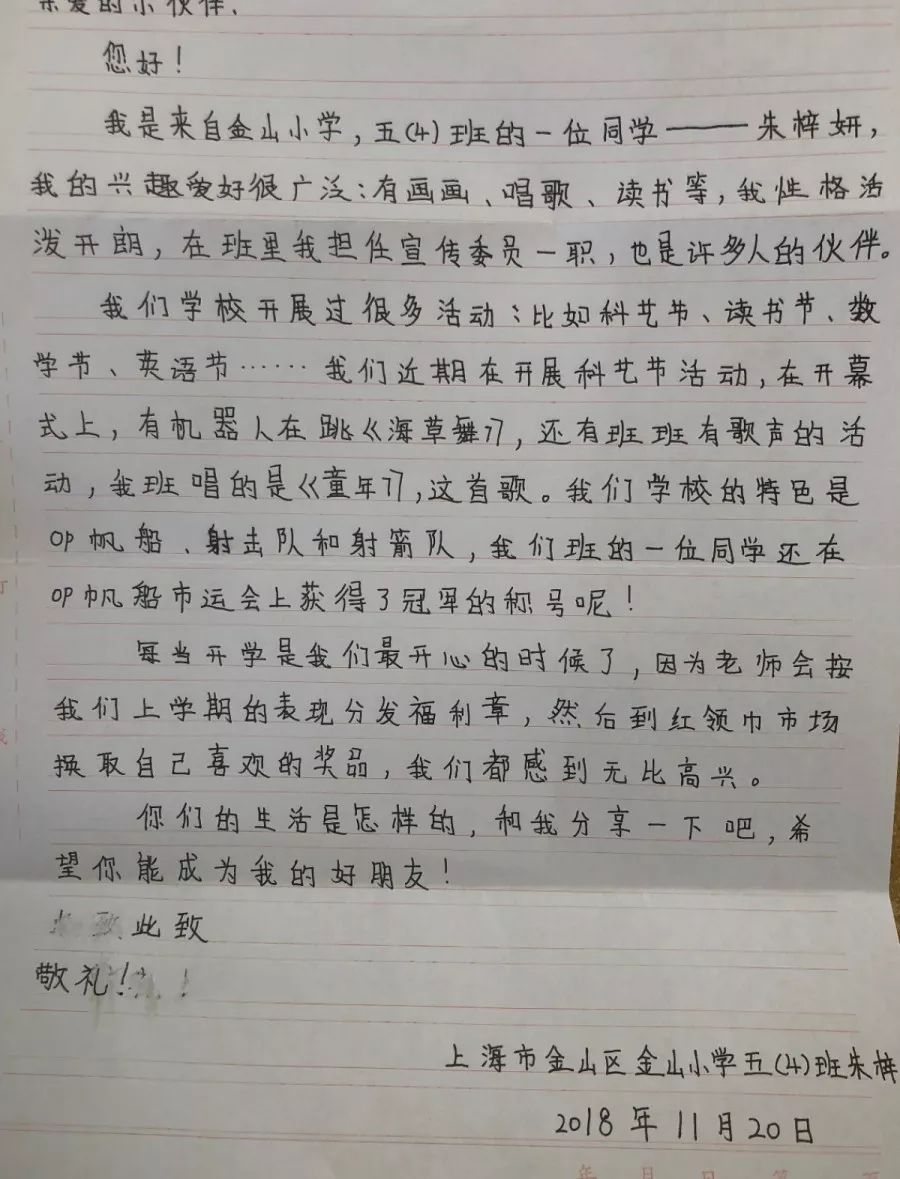 亲爱的小伙伴,
您好!
我是来自金山小学,五(4)班的一位同学——朱梓妍,
我的兴趣爱好很广泛:有画画、唱歌、读书等,我性格活
泼开朗,在班里我担任宣传委员一职,也是许多人的伙伴。
我们学校开展过很多活动:比如科艺节、读书节、数
学节、英语节……我们近期在开展科艺节活动,在开幕
式上,有机器人在跳《海草舞》,还有班班有歌声的活
动,我班唱的是《童年》,这首歌。我们学校的特色是
OP帆船、射击队和射箭队,我们班的一位同学还在
OP帆船市运会上获得了冠军的称号呢!
每当开学是我们最开心的时候了,因为老师会按
我们上学期的表现分发福利章,然后到红领巾市场
换取自己喜欢的奖品,我们都感到无比高兴。
你们的生活是怎样的,和我分享一下吧,希
望你能成为我的好朋友!
此致
敬礼!
上海市金山区金山小学五(4)班朱梓
2018年11月20日
年 月 日 第 页